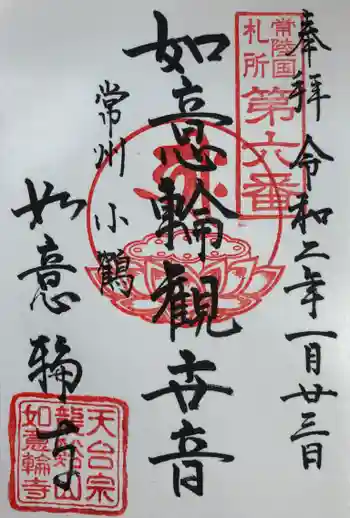 奉拝 令和二年一月廿三日
常陸国
札所
第六番
如意輪観世音
常州 小鶴
如意輪寺
天台宗
龍谿山
如意輪寺